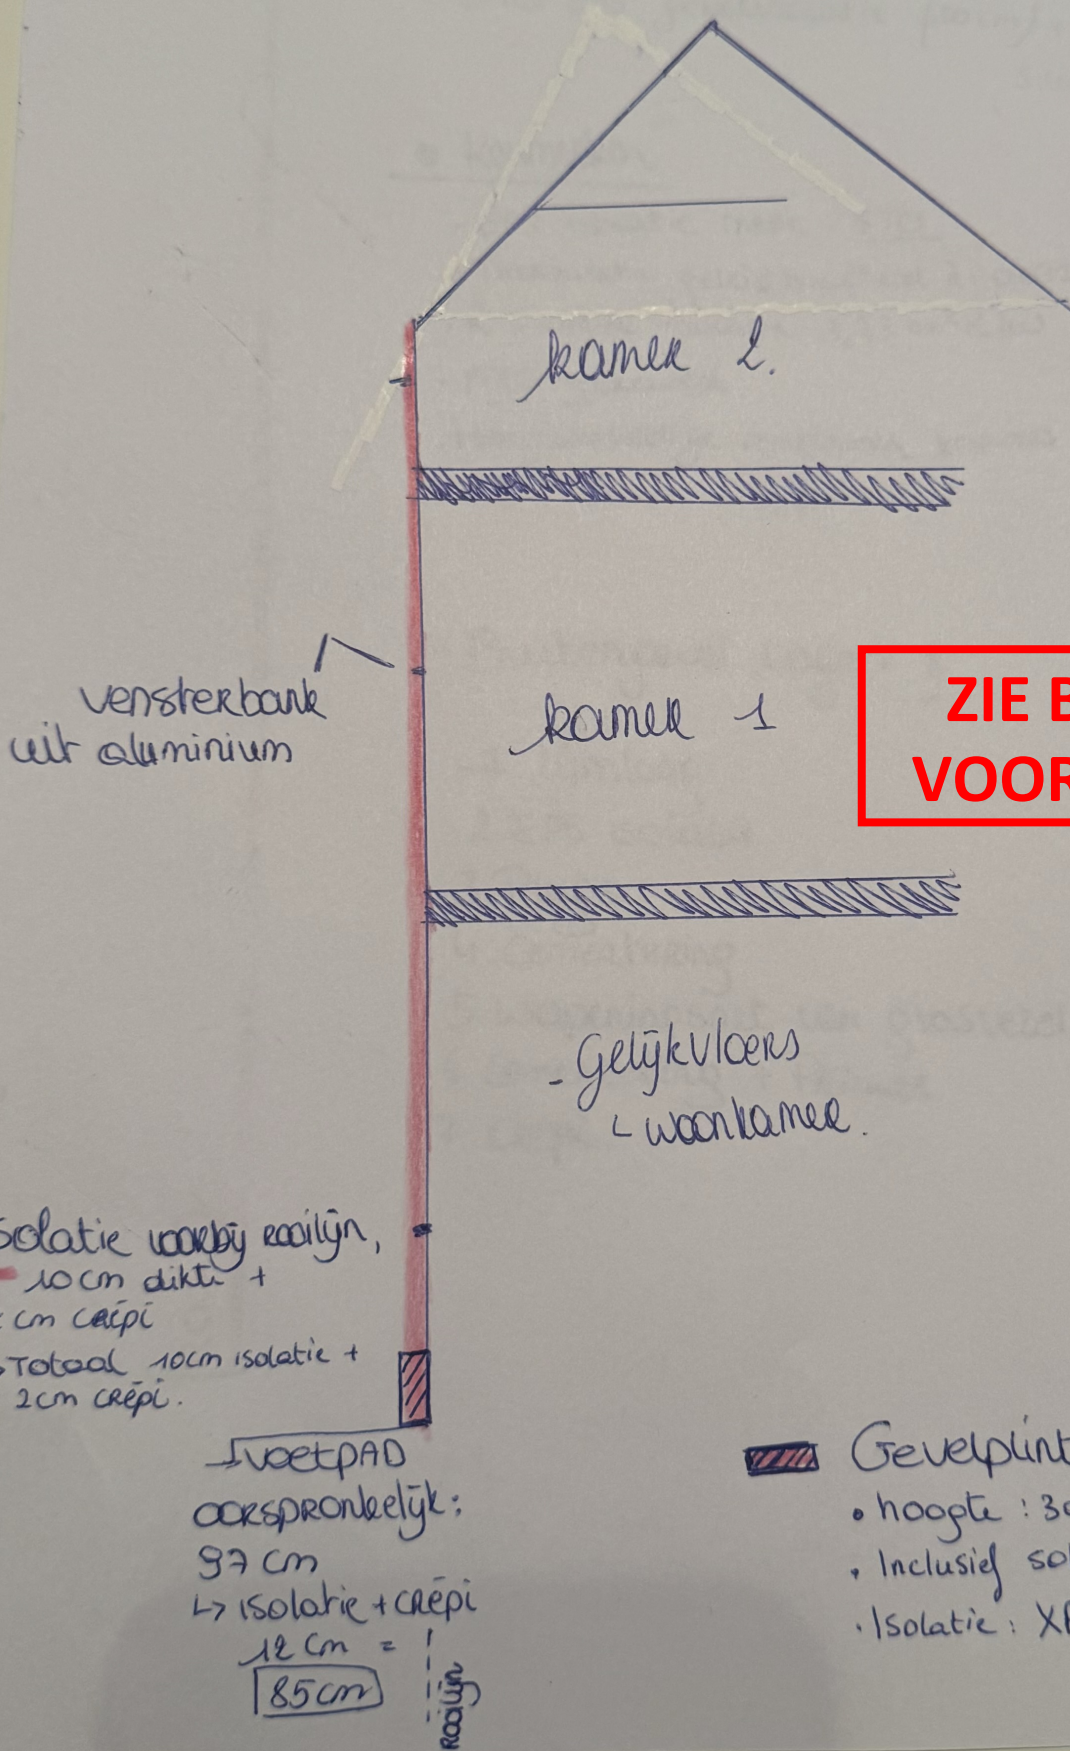 kamer 2.
vensterbank
uit aluminium
kamer 1
ZIE B
VOOR
- Gelijkvloers
↳ woonkamer.
solatie voorbij rooilijn,
10cm dikte +
cm crépi
Totaal 10cm isolatie +
2cm crépi.
voetpad
oorspronkelijk:
97 cm
↳ isolatie + crépi
12 cm =
85cm
Rooilijn
Gevelplint
• hoogte : 30
• Inclusief sol
• Isolatie : XP